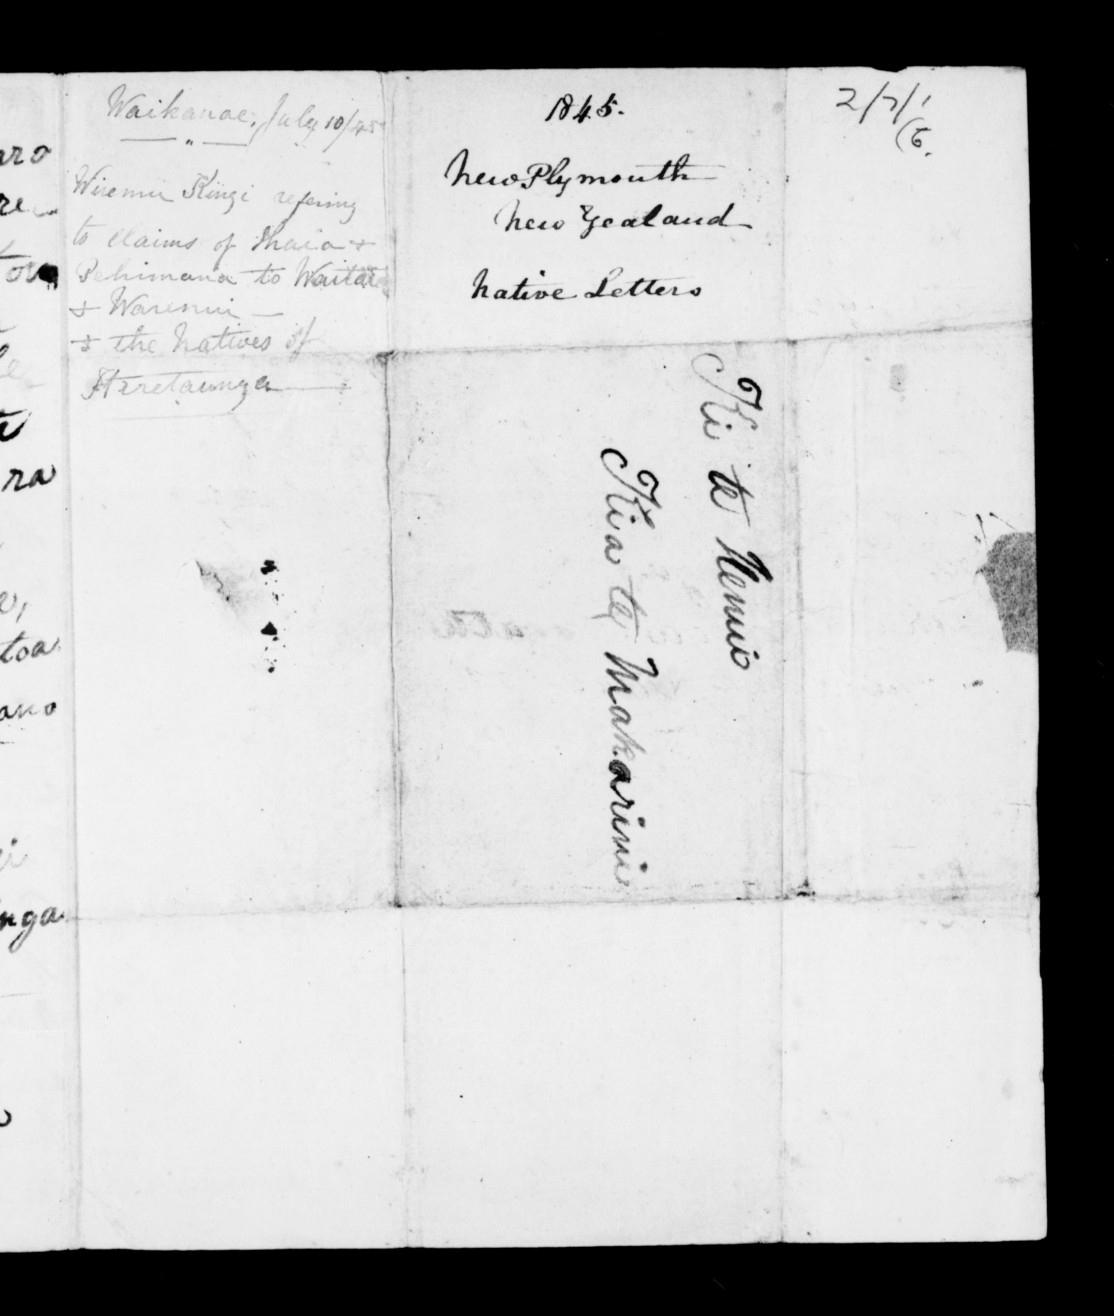 aro
re
tou
ra
toa
ano
nga
Waikanae, July 10/45
Wiremu Kingi refering
to claims of Ihaia &
Pehimana to Waitara
& Waremui
& the Natives of
Heretaunga
1845.
New Plymouth
New Zealand
Native Letters
Ki te Henui
Kia te Makarini
2/7/1
(6.